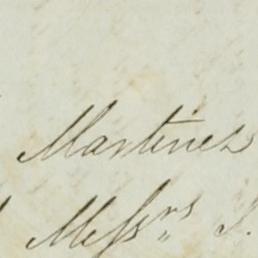 Martinez
Messrs J.